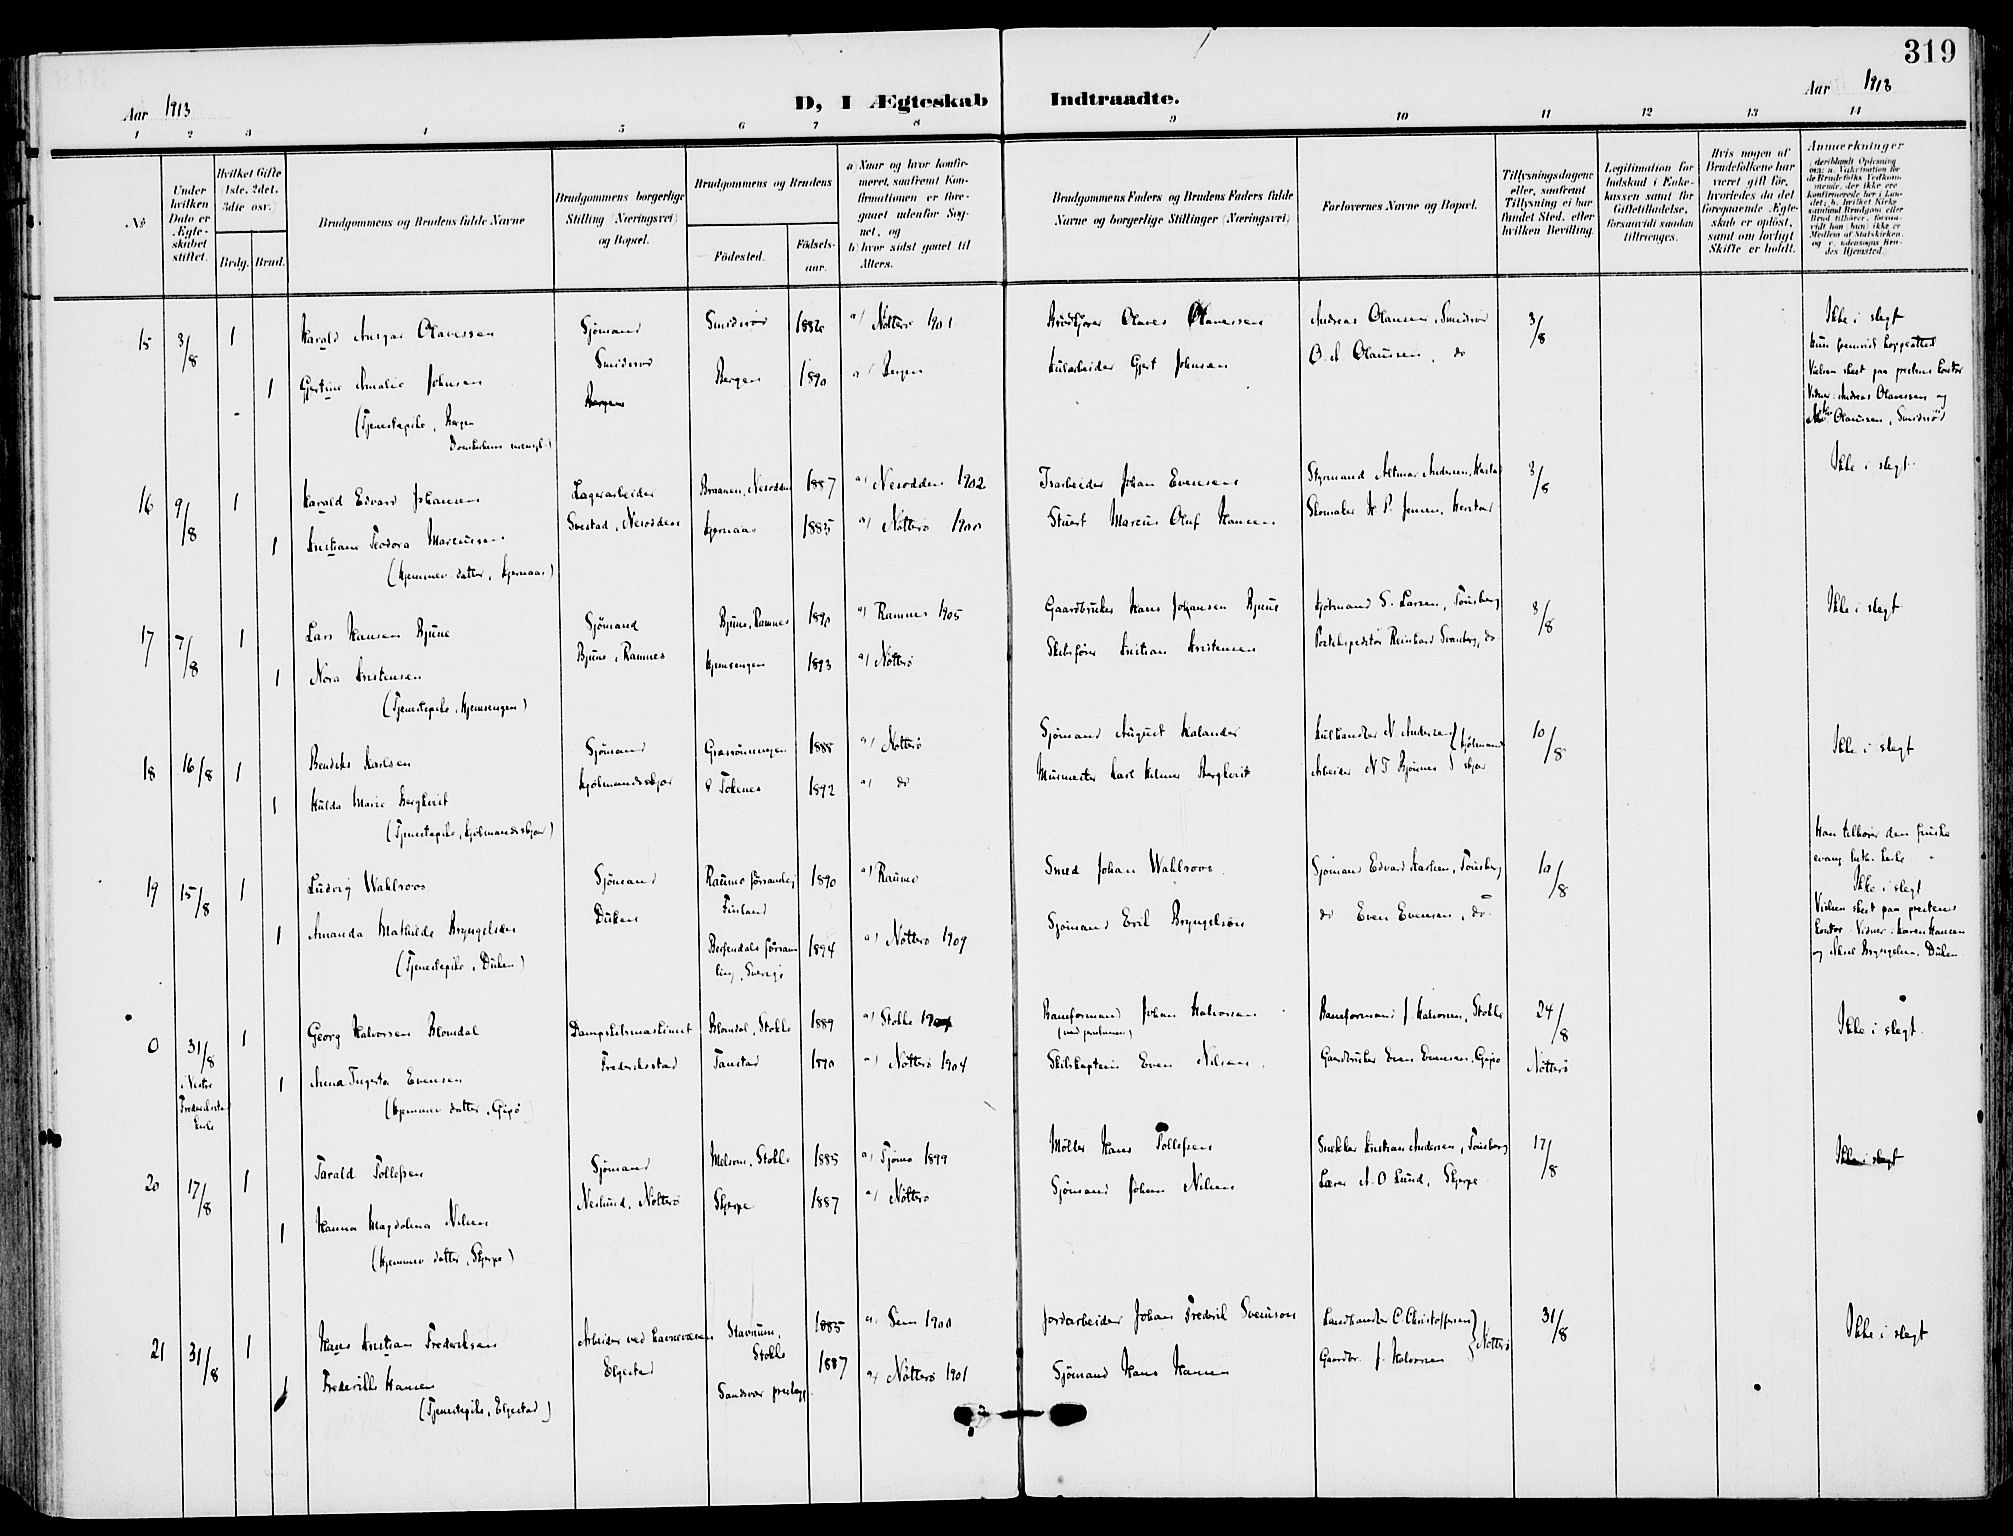 319
Aar 1913
D, I Ægteskab Indtraadte.
Aar 1913
1 2 3 4 5 6 7 8 9 10 11 12 13 14
No
Under hvilken Dato er Ægteskabet stiftet.
Hvilket Gifte (1ste, 2det, 3die osv.)
Brdg. Brud.
Brudgommens og Brudens fulde Navne
Brudgommens borgerlige Stilling (Næringsvei) og Bopæl.
Brudgommens og Brudens
Fødested.
Fødselsaar.
a) Naar og hvor konfirmeret, saafremt Konfirmationen er foregaaet udenfor Sognet, og
b) hvor sidst gaaet til Alters.
Brudgommens Faders og Brudens Faders fulde Navne og borgerlige Stillinger (Næringsvei)
Forlovernes Navne og Bopæl.
Tillysningsdagene eller, saafremt Tillysning ei har fundet Sted, efter hvilken Bevilling.
Legitimation for Indskud i Enkekassen samt for Giftetilladelse, forsaavidt saadan tiltrænges.
Hvis nogen af Brudefolkene har været gift før, hvorledes da det foregaaende Ægteskab er opløst, samt om lovligt Skifte er holdt.
Anmerkninger
15 3/8 1
Harald Ansgar Olavessen
Sjømand
Smidsrød
1886
a) Nøtterø 1901
Olaves Olavessen
Andreas Olausen, Smidsrød
3/8
Ikke i slegt
1
Gjertine Amalie Johnsen
(Tjenestepike, Bergen
Smidsrød
Bergen
Bergen 1890
a) Bergen
Gjert Johnsen
O. A Olausen, do
Vielsen skeet paa prestens kontor
Vidner: Andreas Olavessen og
Olausen, Smidsrød
16 9/8 1
Harald Edvard Johansen
Lagerarbeider
Svestad, Nesodden
Braanen, Nesodden 1887
a) Nesodden 1902
Isarbeider Johan Evensen
Styrmand Andersen,
3/8
Ikke i slegt
1
Kristiane Teodora Marcussen
(hjemmev. datter, Kjernaas)
Kjernaas 1885
a) Nøtterø 1900
Stuert Marcus Oluf Hansen
Skomaker H. P. Jensen,
17 7/8 1
Lars Hansen Bjune
Sjømand
Bjune, Ramnes
Bjune, Ramnes 1890
a) Ramnes 1905
Gaardbruker Hans Johansen Bjune
Kjøbmand S. Larsen, Tønsberg
3/8
Ikke i slegt
1
Nora Kristensen
(Tjenestepike, Hjemsengen)
Hjemsengen 1893
a) Nøtterø
Skibsfører Kristian Kristensen
Postekspeditør Reinhard Svanberg, do
18 16/8 1
Bendiks Karlsen
Sjømand
Kjøbmandsskjær
1888
a) Nøtterø
Sjømand August Kalander
Kulhandler N. Andersen
Arbeider N. T Bjønnes
Kjøbmandskjær
10/8
Ikke i slegt
1
Hulda Marie Bergkvist
(Tjenestepike, Kjøbmandsskjær)
Ø Tokenes 1892
a) do
Murmester Karl Hilmer Bergkvist
19 15/8 1
Ludvig Wahlroos
Sjømand
Duken
Raumo församling
Finland
1890
a) Raumo
Smed Johan Wahlroos
Sjømand Edvard Karlsen, Tønsberg
10/8
Han tilhører den finske
evang. luth. kirke
Ikke i slegt
1
Amanda Mathilde Bryngelsen
(Tjenestepike, Duken)
församling, Sverige
1894
a) Nøtterø 1909
Sjømand Bryngelsön
do Even Evensen, do
Vielsen skeet paa prestens
kontor. Vidner: Karen Hansen
og Aksel Bryngelsen, Duken
0 31/8
i Vestre
Fredriksstad
kirke
1
Georg Halvorsen Blomdal
Dampskibsmaskinist
Fredriksstad
Blomdal, Stokke 1889
a) Stokke 1904
Baneformand Johan Halvorsen
Baneformand J. Halvorsen, Stokke
24/8
Nøtterø
Ikke i slegt.
1
Anna Ingerta Evensen
(hjemmev. datter, Gipø)
Tanstad 1890
a) Nøtterø 1904
Skibskaptein Even Nilsen
Gaardbruker Evens Evensen, Gipø
20 17/8 1
Tarald Tollefsen
Sjømand
Neslund, Nøtterø
Melsom, Stokke 1885
a) Tjømø 1899
Møller Hans Tollefsen
Snekker Kristian Andersen, Tønsberg
17/8
Ikke i slegt
1
Hanna Magdalena Nilsen
(hjemmev. datter, Skjerpe)
Skjerpe 1887
a) Nøtterø
Sjømand Johan Nilsen
Lærer A. O Lund, Skjerpe
21 31/8 1
Hans Kristian Frederiksen
Arbeider ved havnevæsen
Elgestad
Stavnum, Stokke
1885
a) Sem 1900
Jordarbeider Johan Fredrik Svenison
Landhandler C. Christoffersen
Gaardbr. J. Halvorsen
Nøtterø
31/8
Ikke i slegt
1
Frederikke Hansen
(Tjenestepike, Elgestad)
Sandsvær prestegj.
1887
a) Nøtterø 1901
Sjømand Hans Hansen